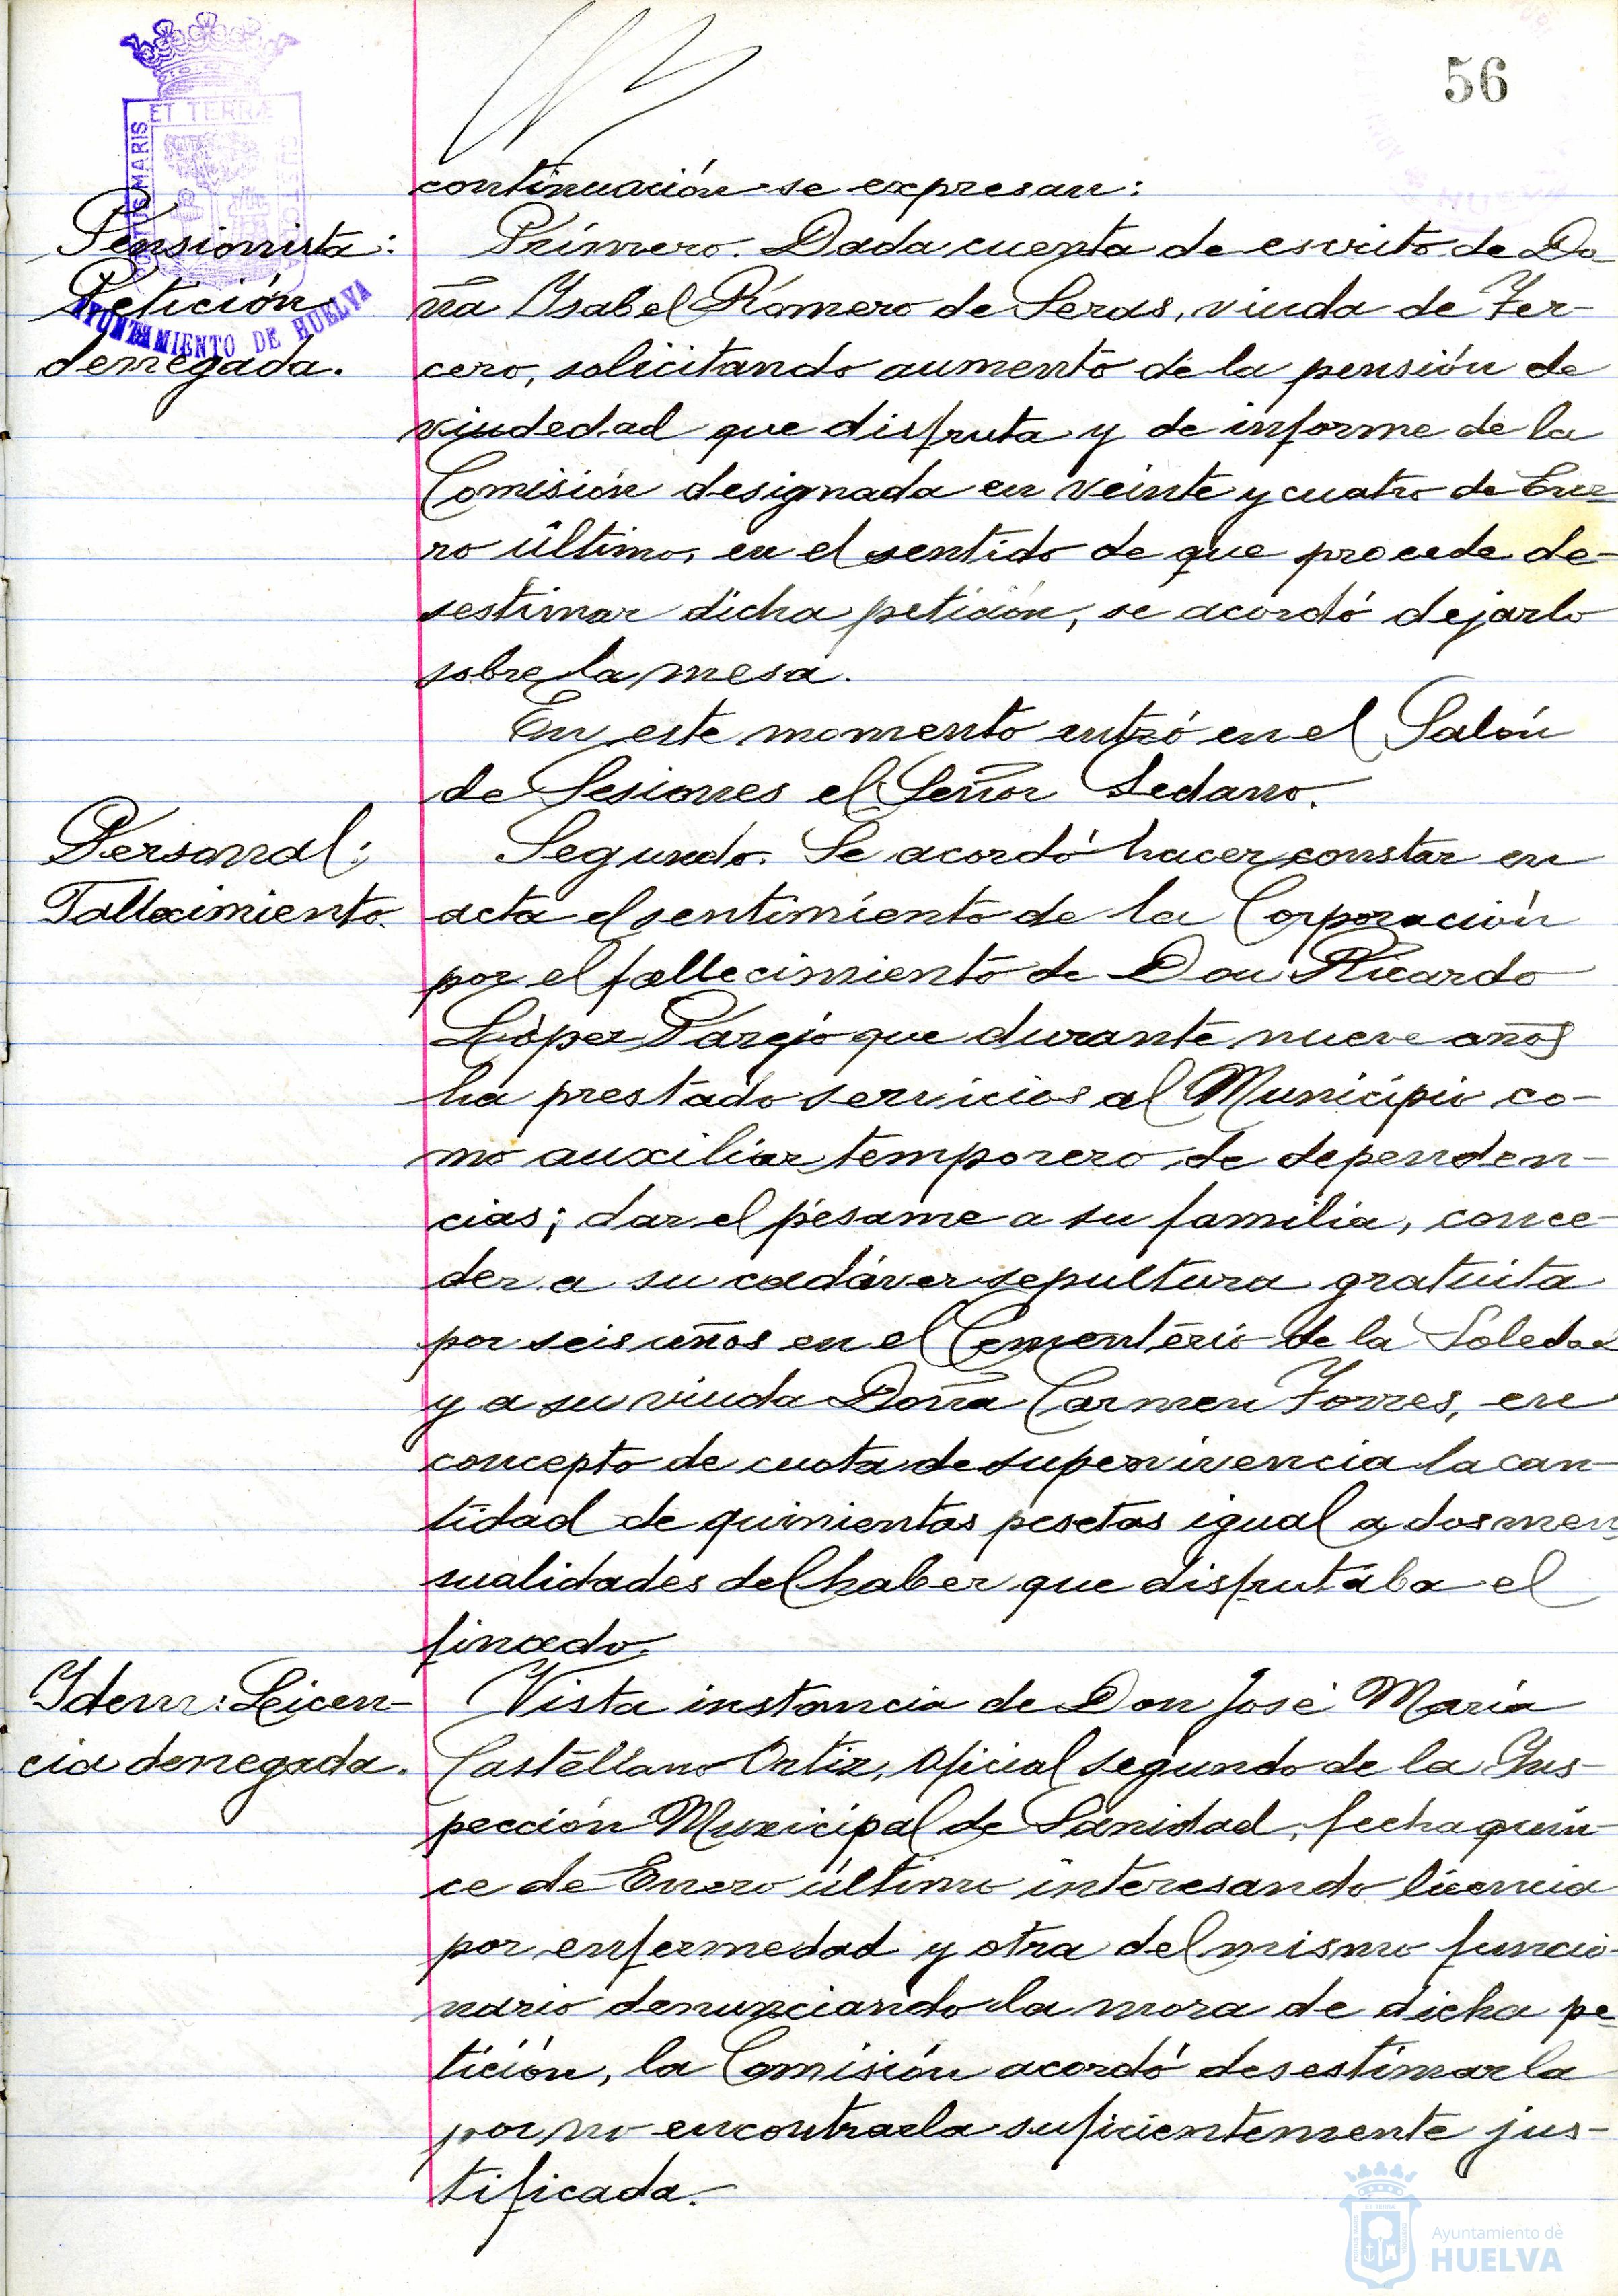 56
PORTUS MARIS
ET TERRÆ
CUSTODIA
AYUNTAMIENTO DE HUELVA
continuación se expresan:
Pensionista:
Petición
denegada.
Primero. Dada cuenta de escrito de Do-
ña Ysabel Romero de Seras, viuda de Ter-
cero, solicitando aumento de la pensión de
viudedad que disfruta y de informe de la
Comisión designada en veinte y cuatro de Ene-
ro último, en el sentido de que procede de-
sestimar dicha petición, se acordó dejarlo
sobre la mesa.
En este momento entró en el Salón
de Sesiones el Señor Sedano.
Personal:
Fallecimiento.
Segundo. Se acordó hacer constar en
acta el sentimiento de la Corporación
por el fallecimiento de Don Ricardo
López Parejo que durante nueve años
ha prestado servicios al Municipio co-
mo auxiliar temporero de dependen-
cias; dar el pésame a su familia, conce-
der a su cadáver sepultura gratuita
por seis años en el Cementerio de la Soledad
y a su viuda Doña Carmen Torres, en
concepto de cuota de supervivencia la can-
tidad de quinientas pesetas igual a dos men
sualidades del haber que disfrutaba el
finado.
Idem: Licen-
cia denegada.
Vista instancia de Don José María
Castellano Ortiz, Oficial segundo de la Ins-
pección Municipal de Sanidad, fecha quin-
ce de Enero último interesando licencia
por enfermedad y otra del mismo funcio-
nario denunciando la mora de dicha pe-
tición, la Comisión acordó desestimarla
por no encontrarla suficientemente jus-
tificada.
Ayuntamiento de
HUELVA